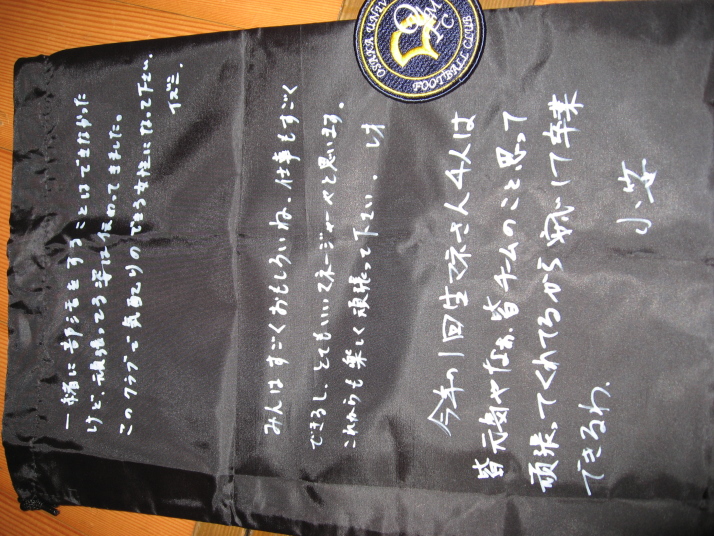 OSAKA UNIV
FM
FC
FOOTBALL CLUB
一緒に部活をすることはできなかった
けど、頑張ってる姿は伝わってきました。
このクラブで気配りのできる女性になって下さい。
イズミ
みんはすごくおもしろいね。仕事もすごく
できるし、とてもいいマネージャーやと思います。
これからも楽しく頑張って下さい。 レオ
今年の1回生マネさん4人は
皆元気やなぁ、皆チームのこと思って
頑張ってくれてるから安心して卒業
できるわ。
小笠